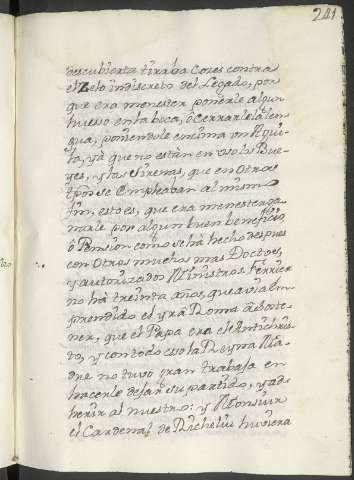 241
descubierta tiraba Cozes contra
el Zelo indiscreto del Legado, por
que era menester ponerle algun
huesso en la boca, ò Cerrarle la len
gua, poniendole encima un Aqui
la, yà que no estàn en uso los Bue
yes, y las Sirenas, que en otros
tpos se Empleaban al mismo
fin, esto es, que era menester ga
narle por algun buen beneficio,
ò Pension como se hà hecho despues
con otros muchos mas Doctos,
y autorizados Ministros, Ferrier
no hà treinta años, que avia Em
prendido el yr à Roma à soste
ner, que el Papa era el Antichris
to, y con todo eso la Reyna Ma
dre no tuvo gran trabajo en
hacerle dejar su partido, y ad
herir al nuestro: y Monsiur
el Cardenal de Richeliu huviera